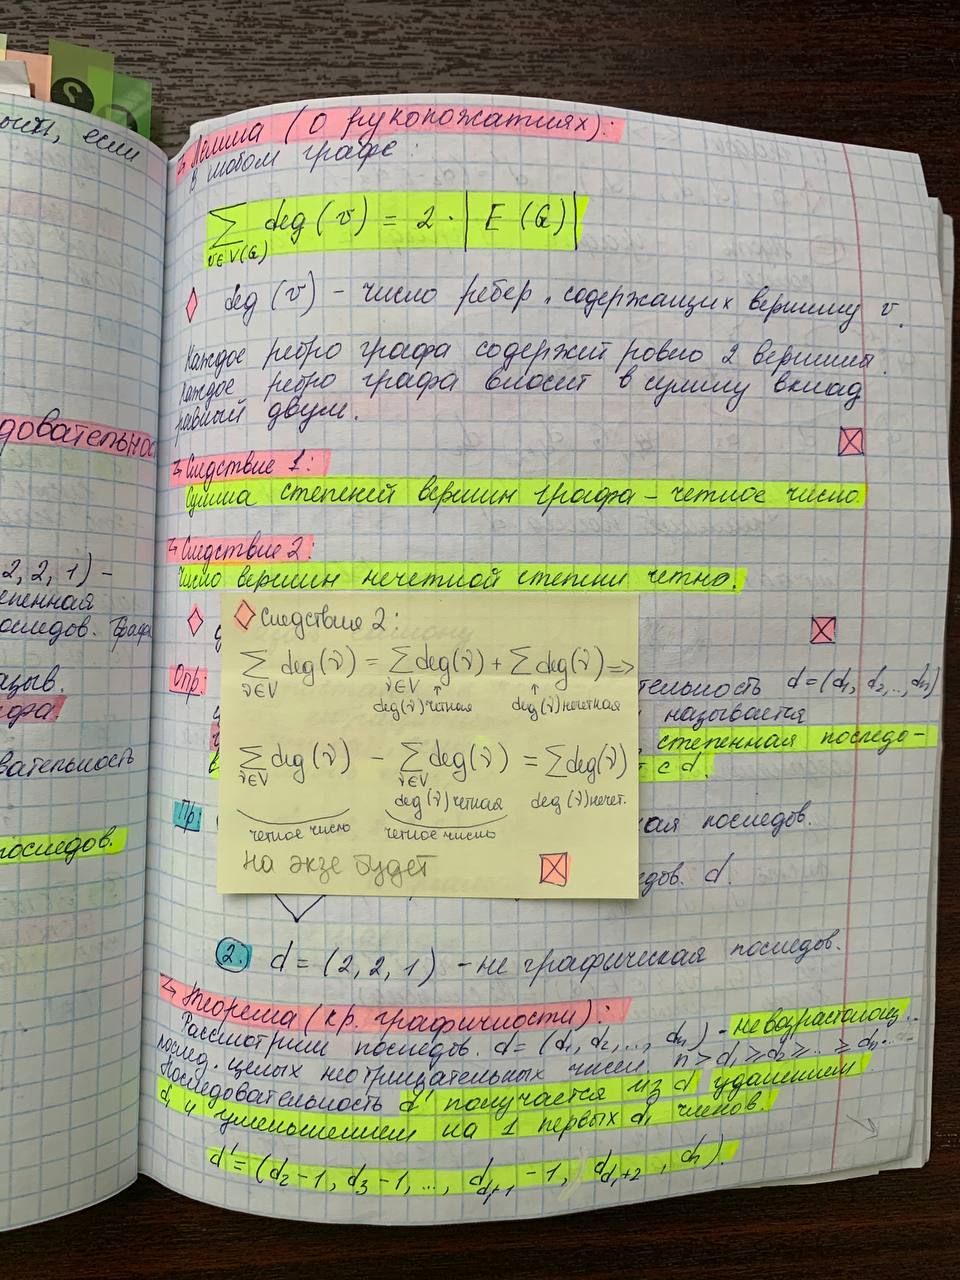 если
довательнос
2, 2, 1) –
епенная
послед.
азыв.
вательность
послед.
↳ Лемма (о рукопожатиях):
В любом графе:
∑ deg (v) = 2 · | E (G) |
v∈V(G)
deg (v) – число ребер, содержащих вершину v.
Каждое ребро графа содержит ровно 2 вершины.
Каждое ребро графа вносит в сумму вклад
равный двум.
↳ Следствие 1:
Сумма степеней вершин графа – четное число.
↳ Следствие 2:
Число вершин нечетной степени четно.
Следствия 2:
∑ deg(v) = ∑ deg(v) + ∑ deg(v) =>
v∈V v∈V
deg(v) четная deg(v) нечетная
∑ deg(v) – ∑ deg(v) = ∑ deg(v)
v∈V v∈V
deg(v) четная deg(v) нечет.
четное число четное число
на экзе будет
Опр:
тельность d=(d₁, d₂,.., dₙ)
называется
степенная последо-
т с d.
Пр:
кая послед.
дов. d.
2. d = (2, 2, 1) – не графическая послед.
↳ Теорема (кр. графичности):
Рассмотрим послед. d= (d₁, d₂,..., dₙ) – невозрастающ..
послед. целых неотрицательных чисел. n > d₁ ≥ d₂ ≥ .. ≥ dₙ.
Последовательность d' получается из d удалением
d₁ и уменьшением на 1 первых d₁ членов.
d' = (d₂ –1, d₃ –1, ..., d_{d₁+1} –1, d_{d₁+2}, dₙ).